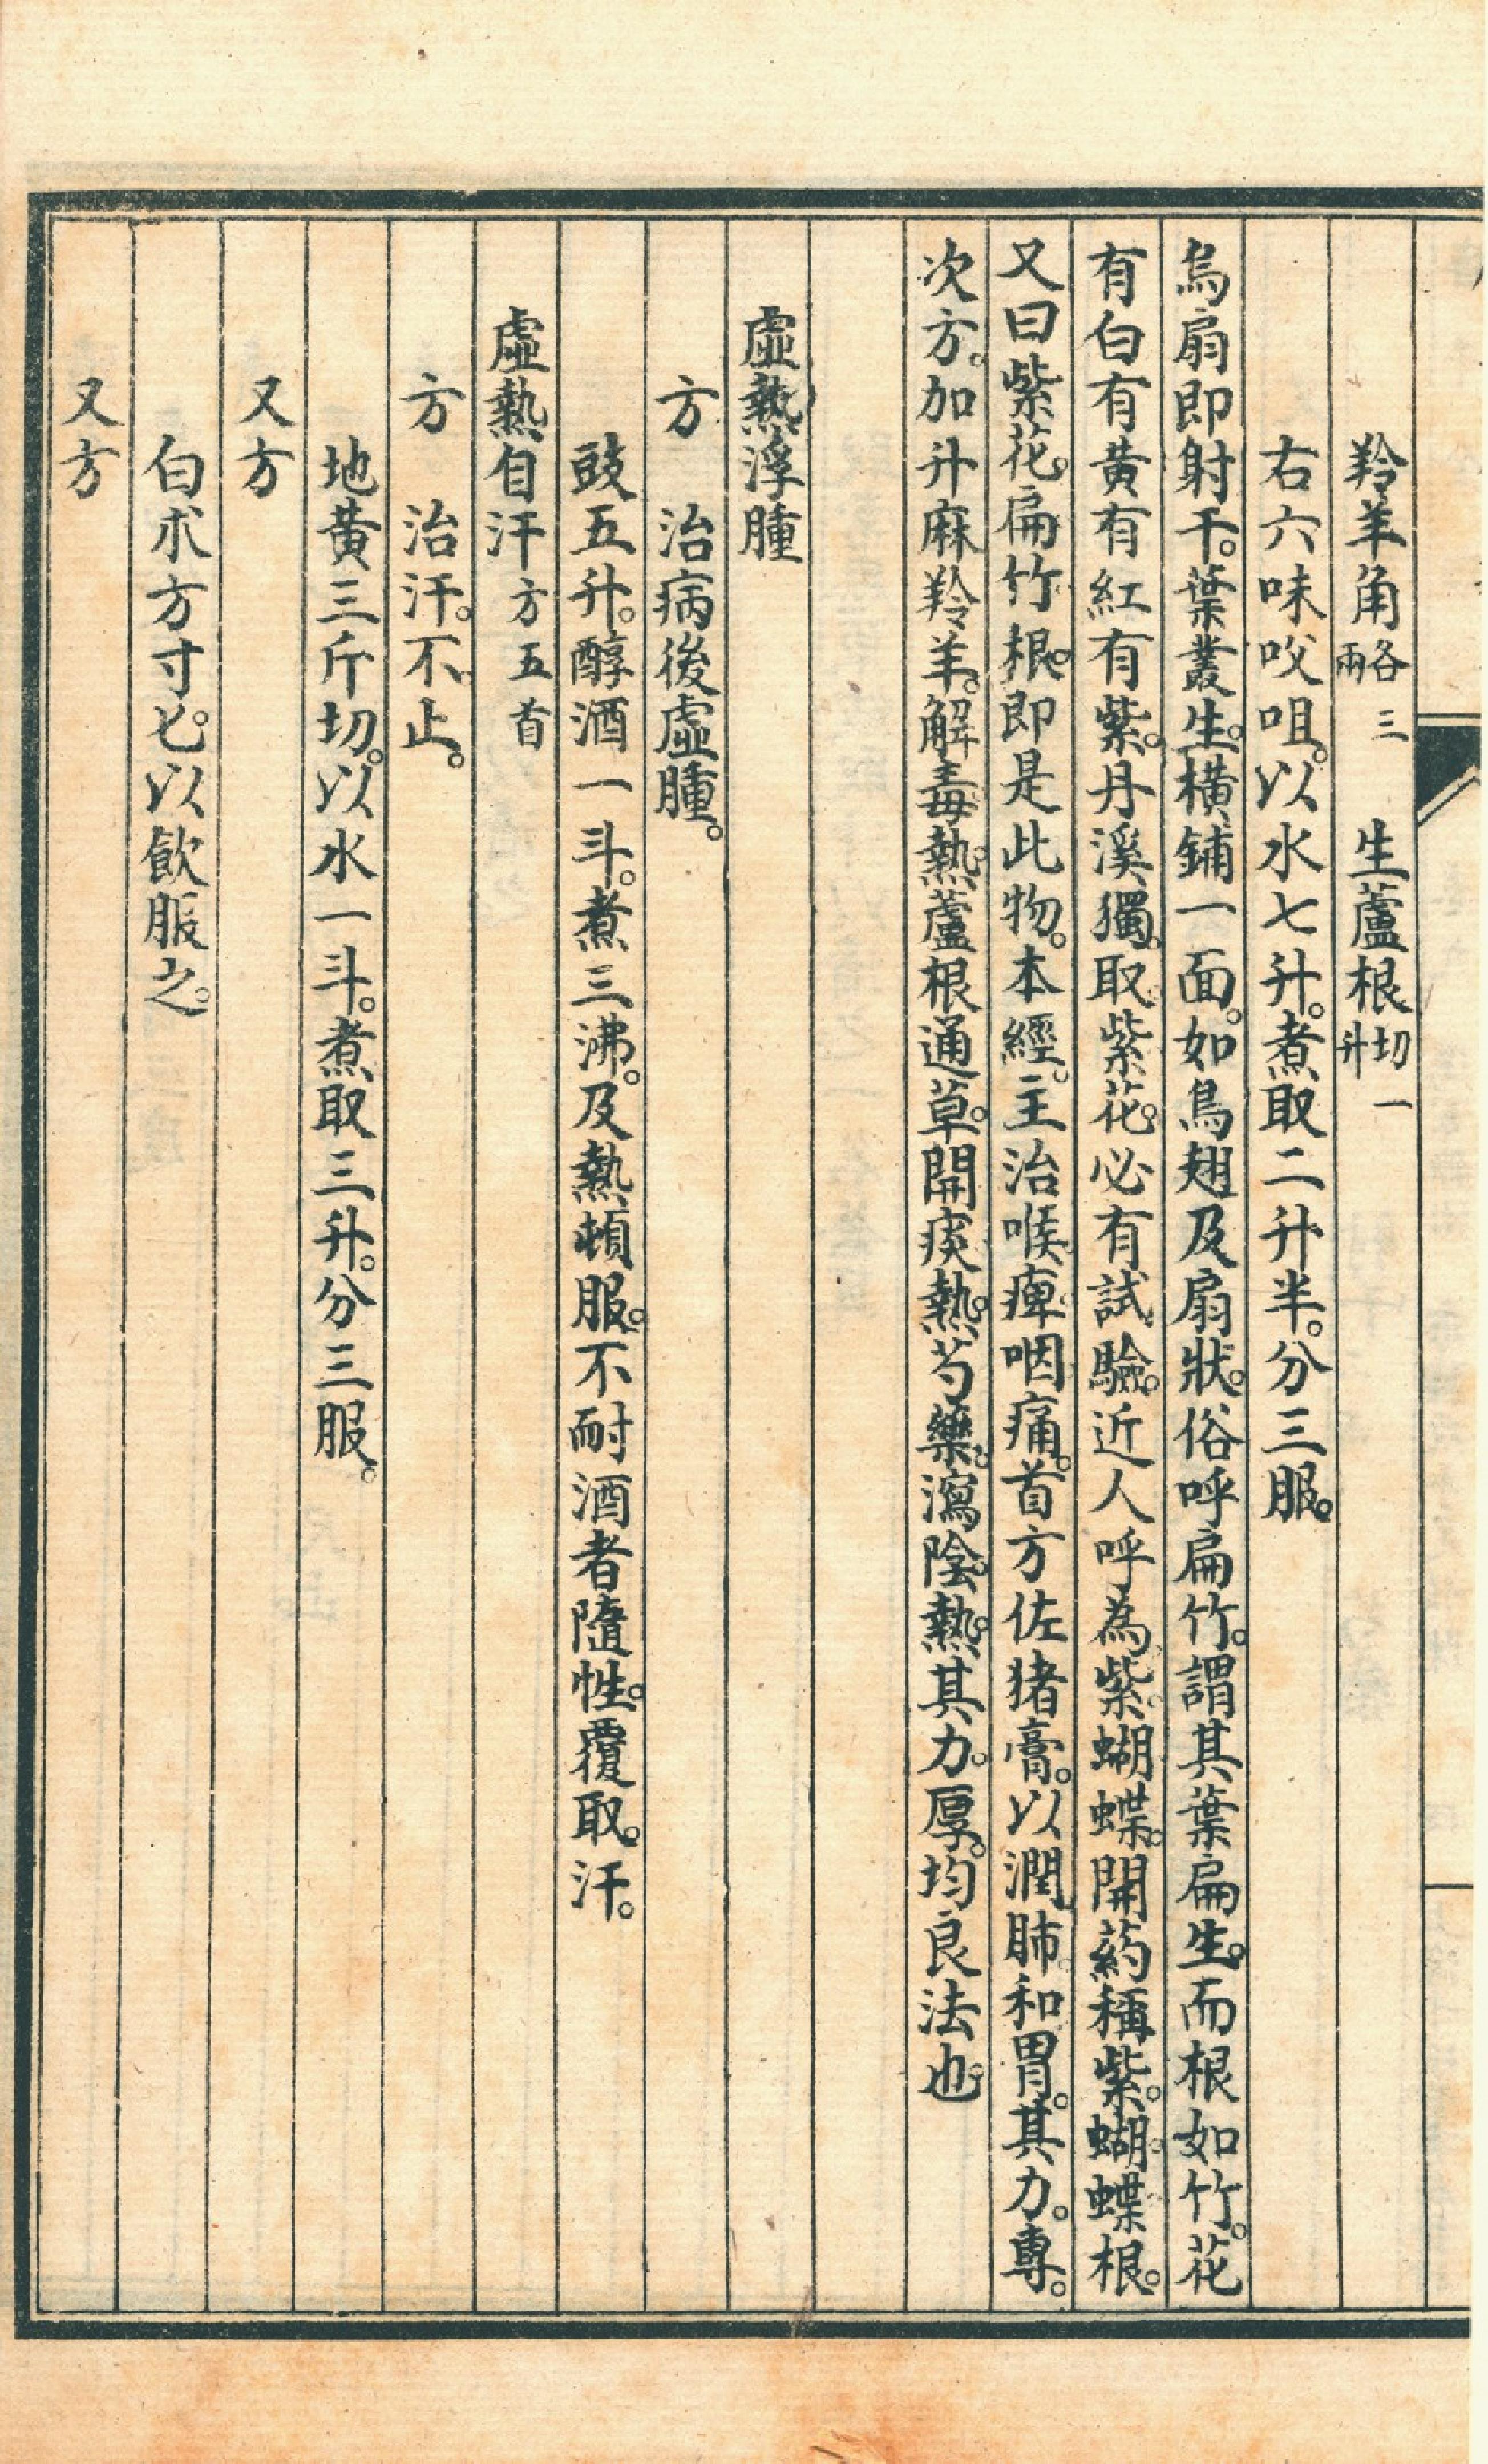 羚羊角各三兩 生蘆根切一升
右六味㕮咀。以水七升。煮取二升半。分三服。
烏扇即射干。葉叢生。橫鋪一面。如烏翅及扇狀。俗呼扁竹。謂其葉扁生。而根如竹。花
有白有黃有紅有紫。丹溪獨取紫花。必有試驗。近人呼為紫蝴蝶。開葯稱紫蝴蝶根。
又曰紫花扁竹根。即是此物。本經。主治喉痺咽痛。首方佐猪膏。以潤肺和胃。其力專。
次方。加升麻羚羊。解毒熱。蘆根通草。開痰熱。芍藥。瀉陰熱。其力厚。均良法也
虛熱浮腫
方 治病後虛腫。
豉五升。醇酒一斗。煮三沸。及熱頓服。不耐酒者隨性。覆取汗。
虛熱自汗方五首
方 治汗。不止。
地黃三斤切。以水一斗。煮取三升。分三服。
又方
白朮方寸匕。以飲服之。
又方